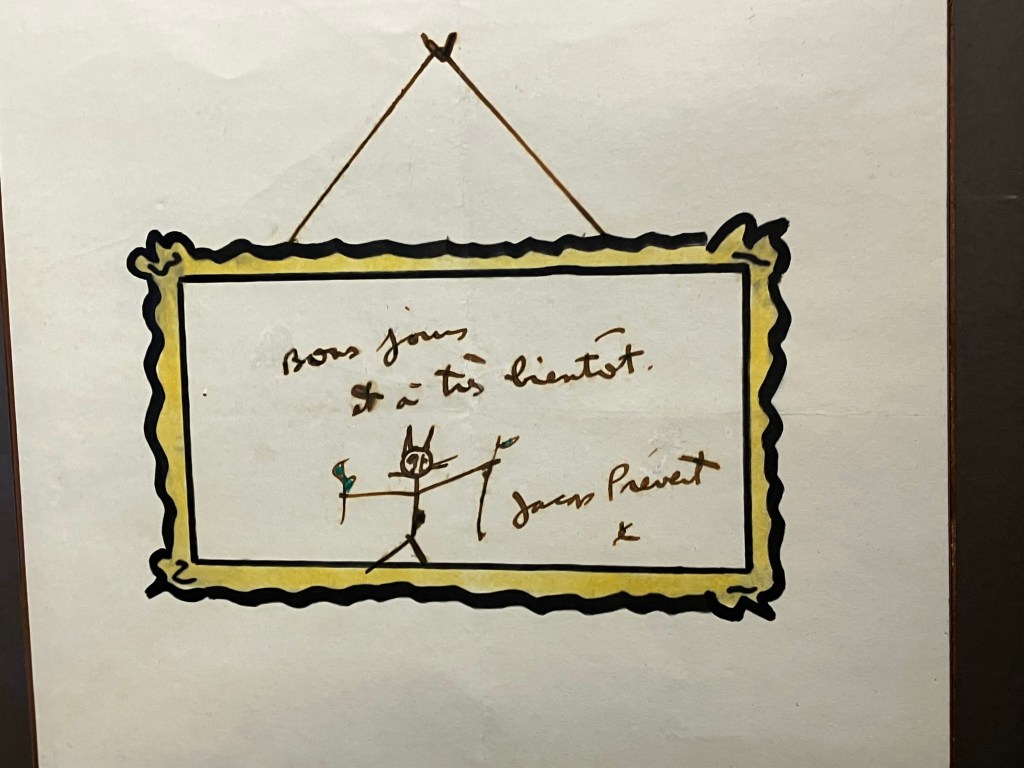 Bons jours
et à très bientôt.
Jacques Prévert